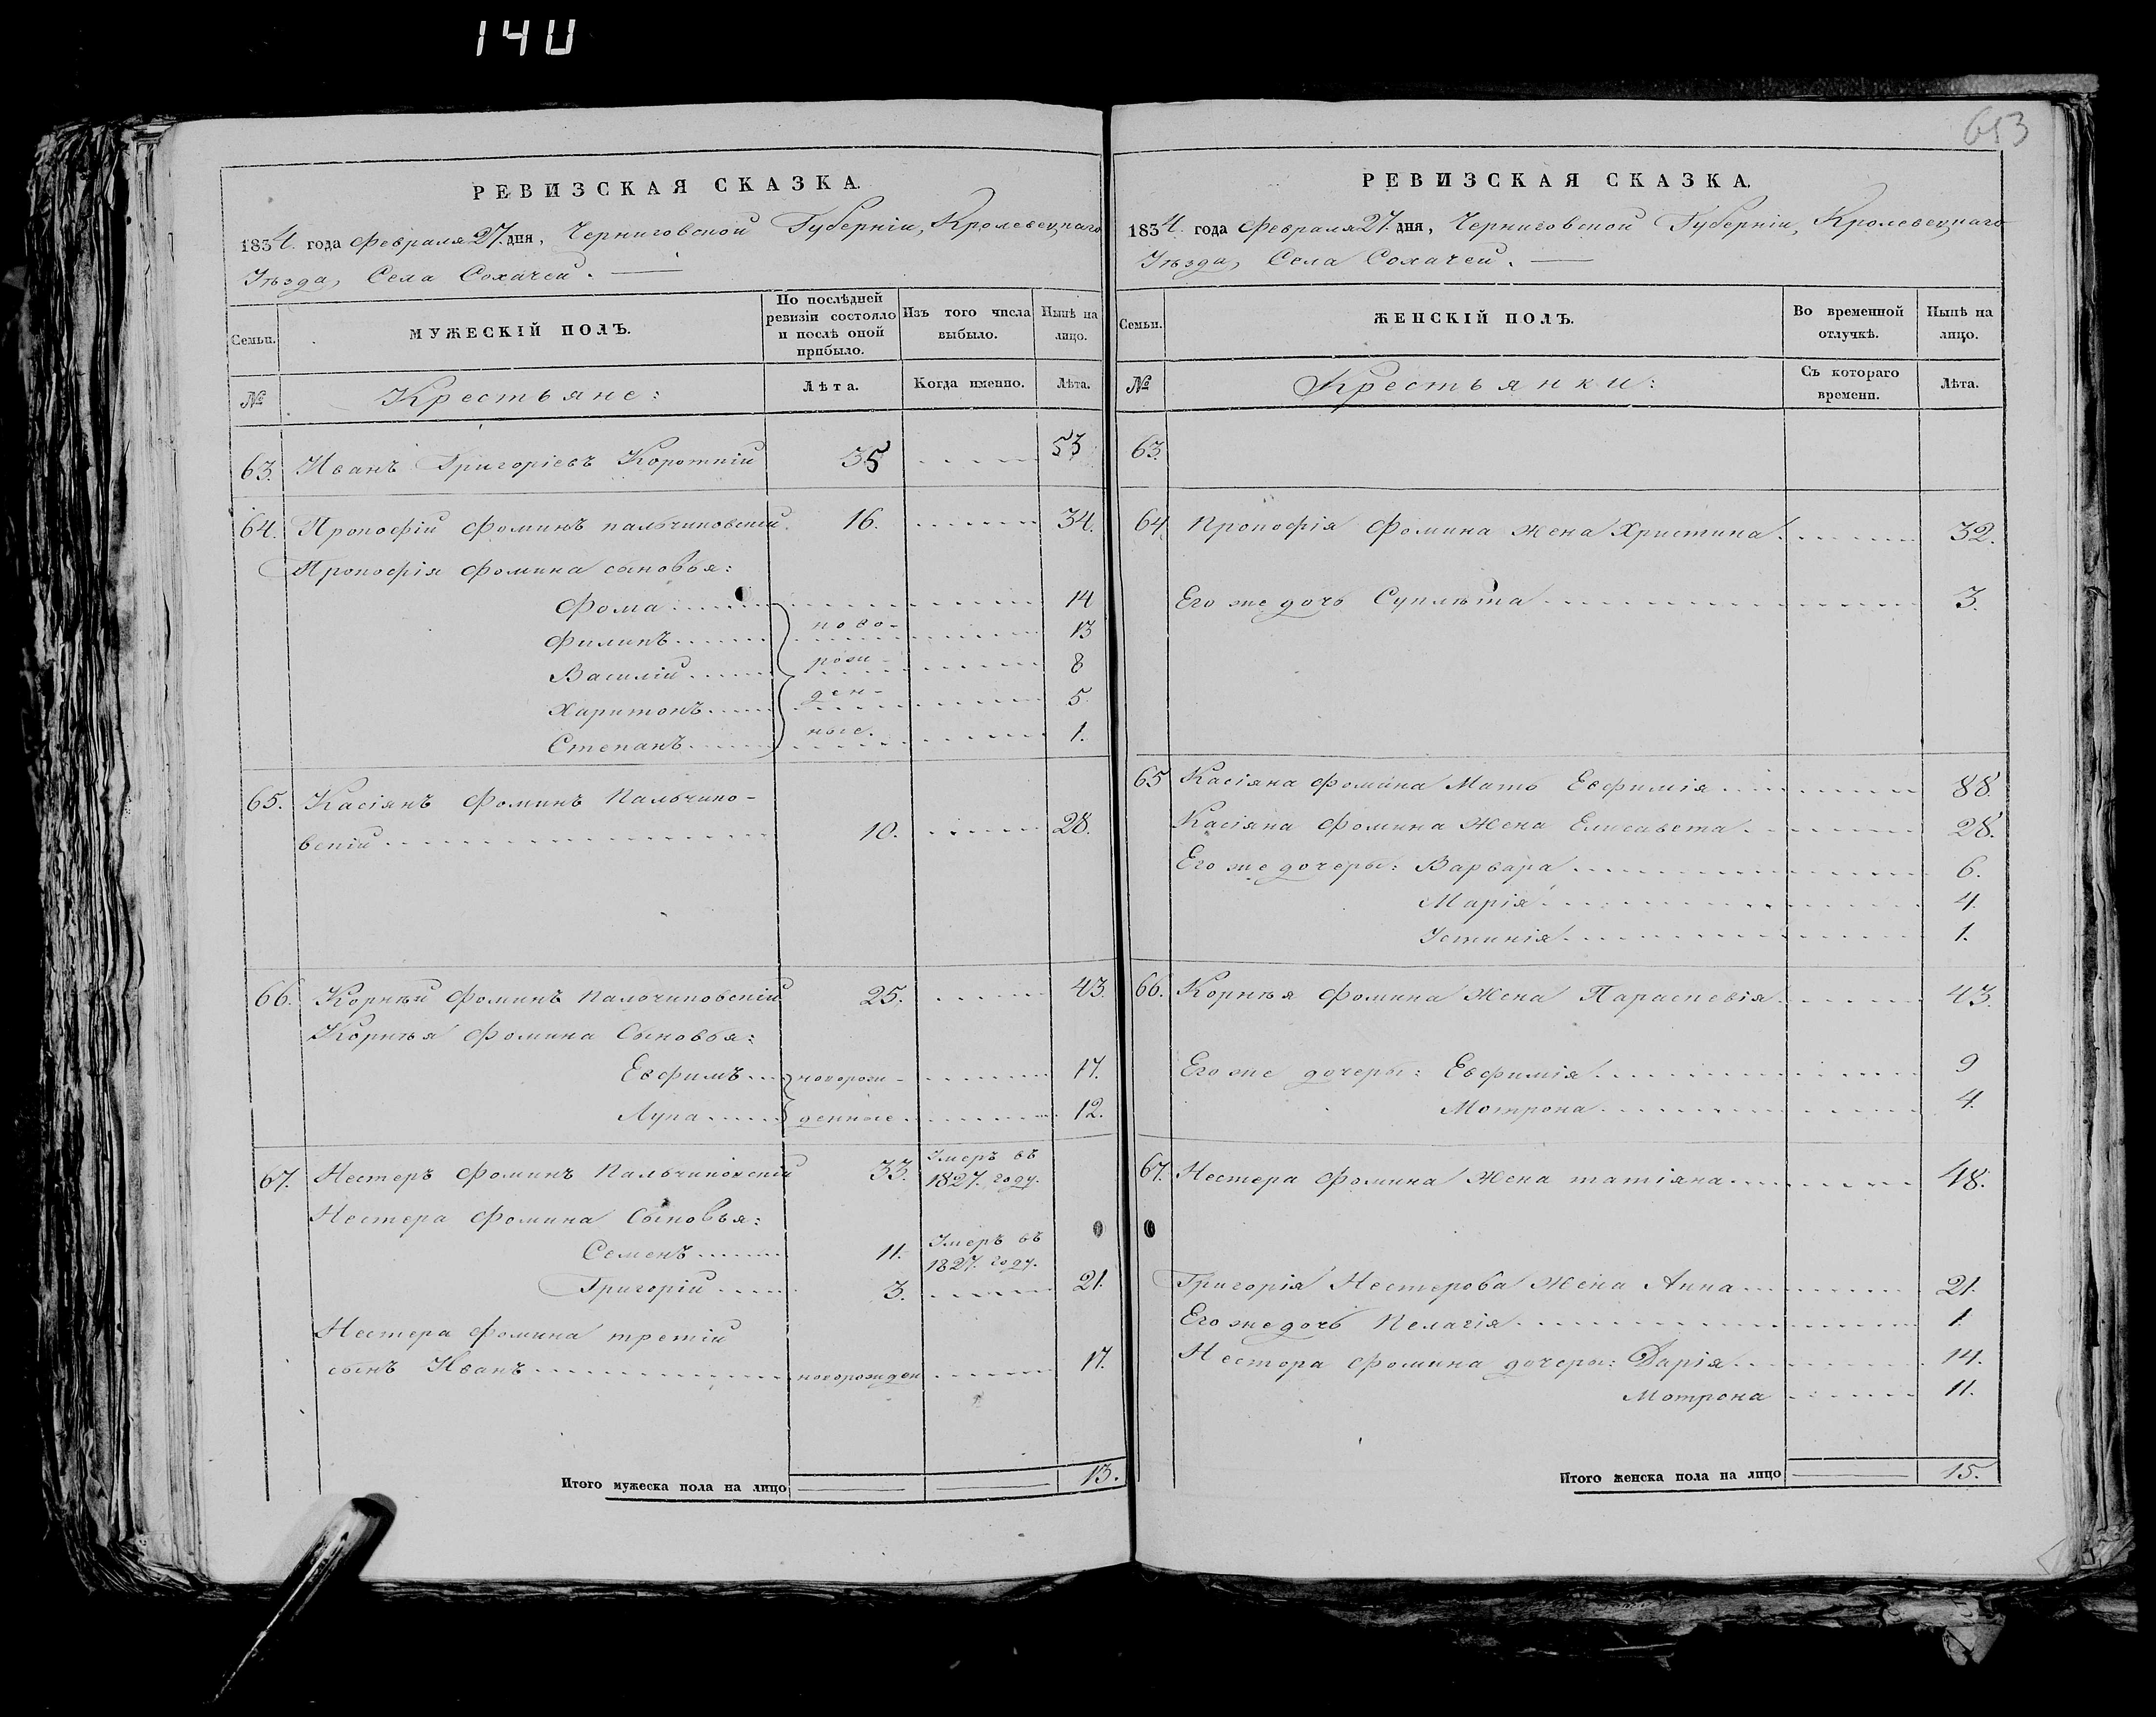 140
653
РЕВИЗСКАЯ СКАЗКА.
1834. года Февраля 27. дня, Черниговской Губерніи, Кролевецкаго
Уѣзда, Села Сохачей.
Семьи.
МУЖЕСКІЙ ПОЛЪ.
По послѣдней ревизіи состояло и послѣ оной прибыло.
Изъ того числа выбыло.
Нынѣ на лицо.
№
Крестьяне:
Лѣта.
Когда именно.
Лѣта.
63. Иванъ Григоріевъ Короткій 35 53
64. Прокофій Фоминъ пальчиковскій. 16. 34.
Прокофія Фомина сыновья:
Фома 14
Филипъ ново- 13
Василій рож- 8
Харитонъ ден- 5
Степанъ ные. 1.
65. Касіянъ Фоминъ Пальчико-
вскій 10. 28.
66. Корнѣй Фоминъ пальчиковскій 25. 43.
Корнѣя Фомина Сыновья:
Евфимъ новорож- 17.
Лука денные 12.
67. Нестеръ Фоминъ Пальчиковскій 33. Умеръ въ
1827. году.
Нестера Фомина Сыновья:
Семенъ 11. Умеръ въ
1827. году.
Григорій 3. 21.
Нестера Фомина третій
сынъ Иванъ новорожден 17.
Итого мужеска пола на лицо 13.
РЕВИЗСКАЯ СКАЗКА.
1834. года Февраля 27. дня, Черниговской Губерніи, Кролевецкаго
Уѣзда, Села Сохачей.
Семьи.
ЖЕНСКІЙ ПОЛЪ.
Во временной отлучкѣ.
Нынѣ на лицо.
№
Крестьянки:
Съ котораго времени.
Лѣта.
63.
64. Прокофія Фомина Жена Христина 32.
Его же дочь 3.
65 Касіяна Фомина Мать Евфимія 88.
Касіяна Фомина Жена Елисавета 28.
Его же дочеры: Варвара 6.
Марія 4.
Устинія 1.
66. Корнѣя Фомина Жена Параскевія 43.
Его же дочеры: Евфимія 9
Мотрона 4.
67. Нестера Фомина Жена татіяна 48.
Григорія Нестерова Жена Анна 21.
Его же дочь Пелагія 1
Нестора Фомина дочеры: Дарія 14.
Мотрона 11.
Итого женска пола на лицо 15.